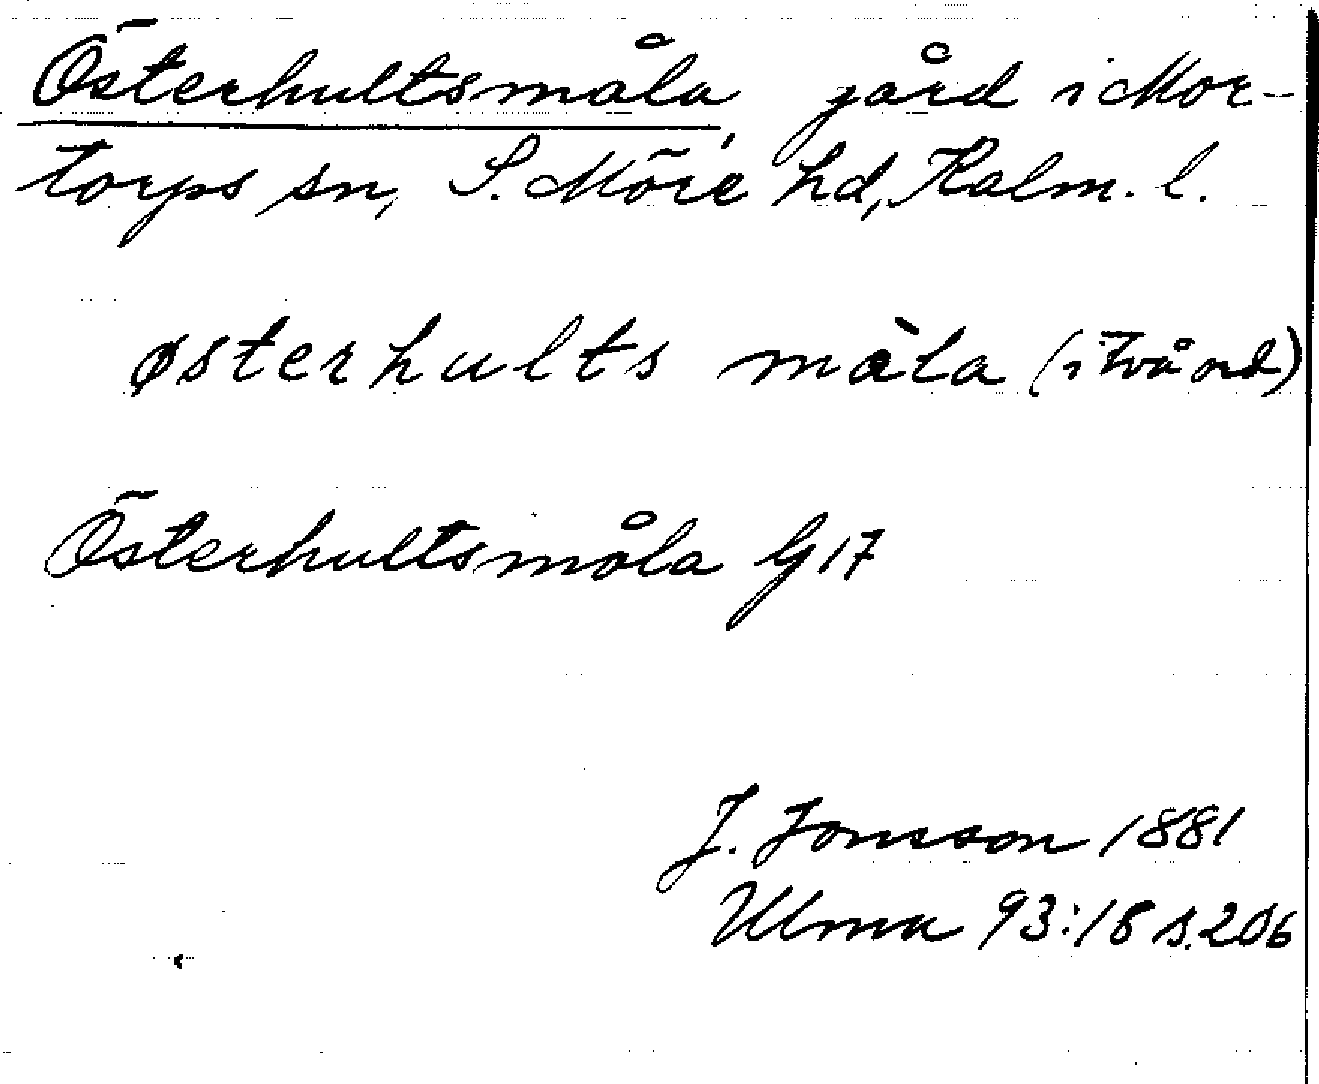 Österhultsmåla, gård i Mor-
torps sn, S. Möre hd, Kalm. l.
østerhults màla (i två ord)
Österhultsmåla G 17
J. Jonsson 1881
Ulma 93:18 s. 206